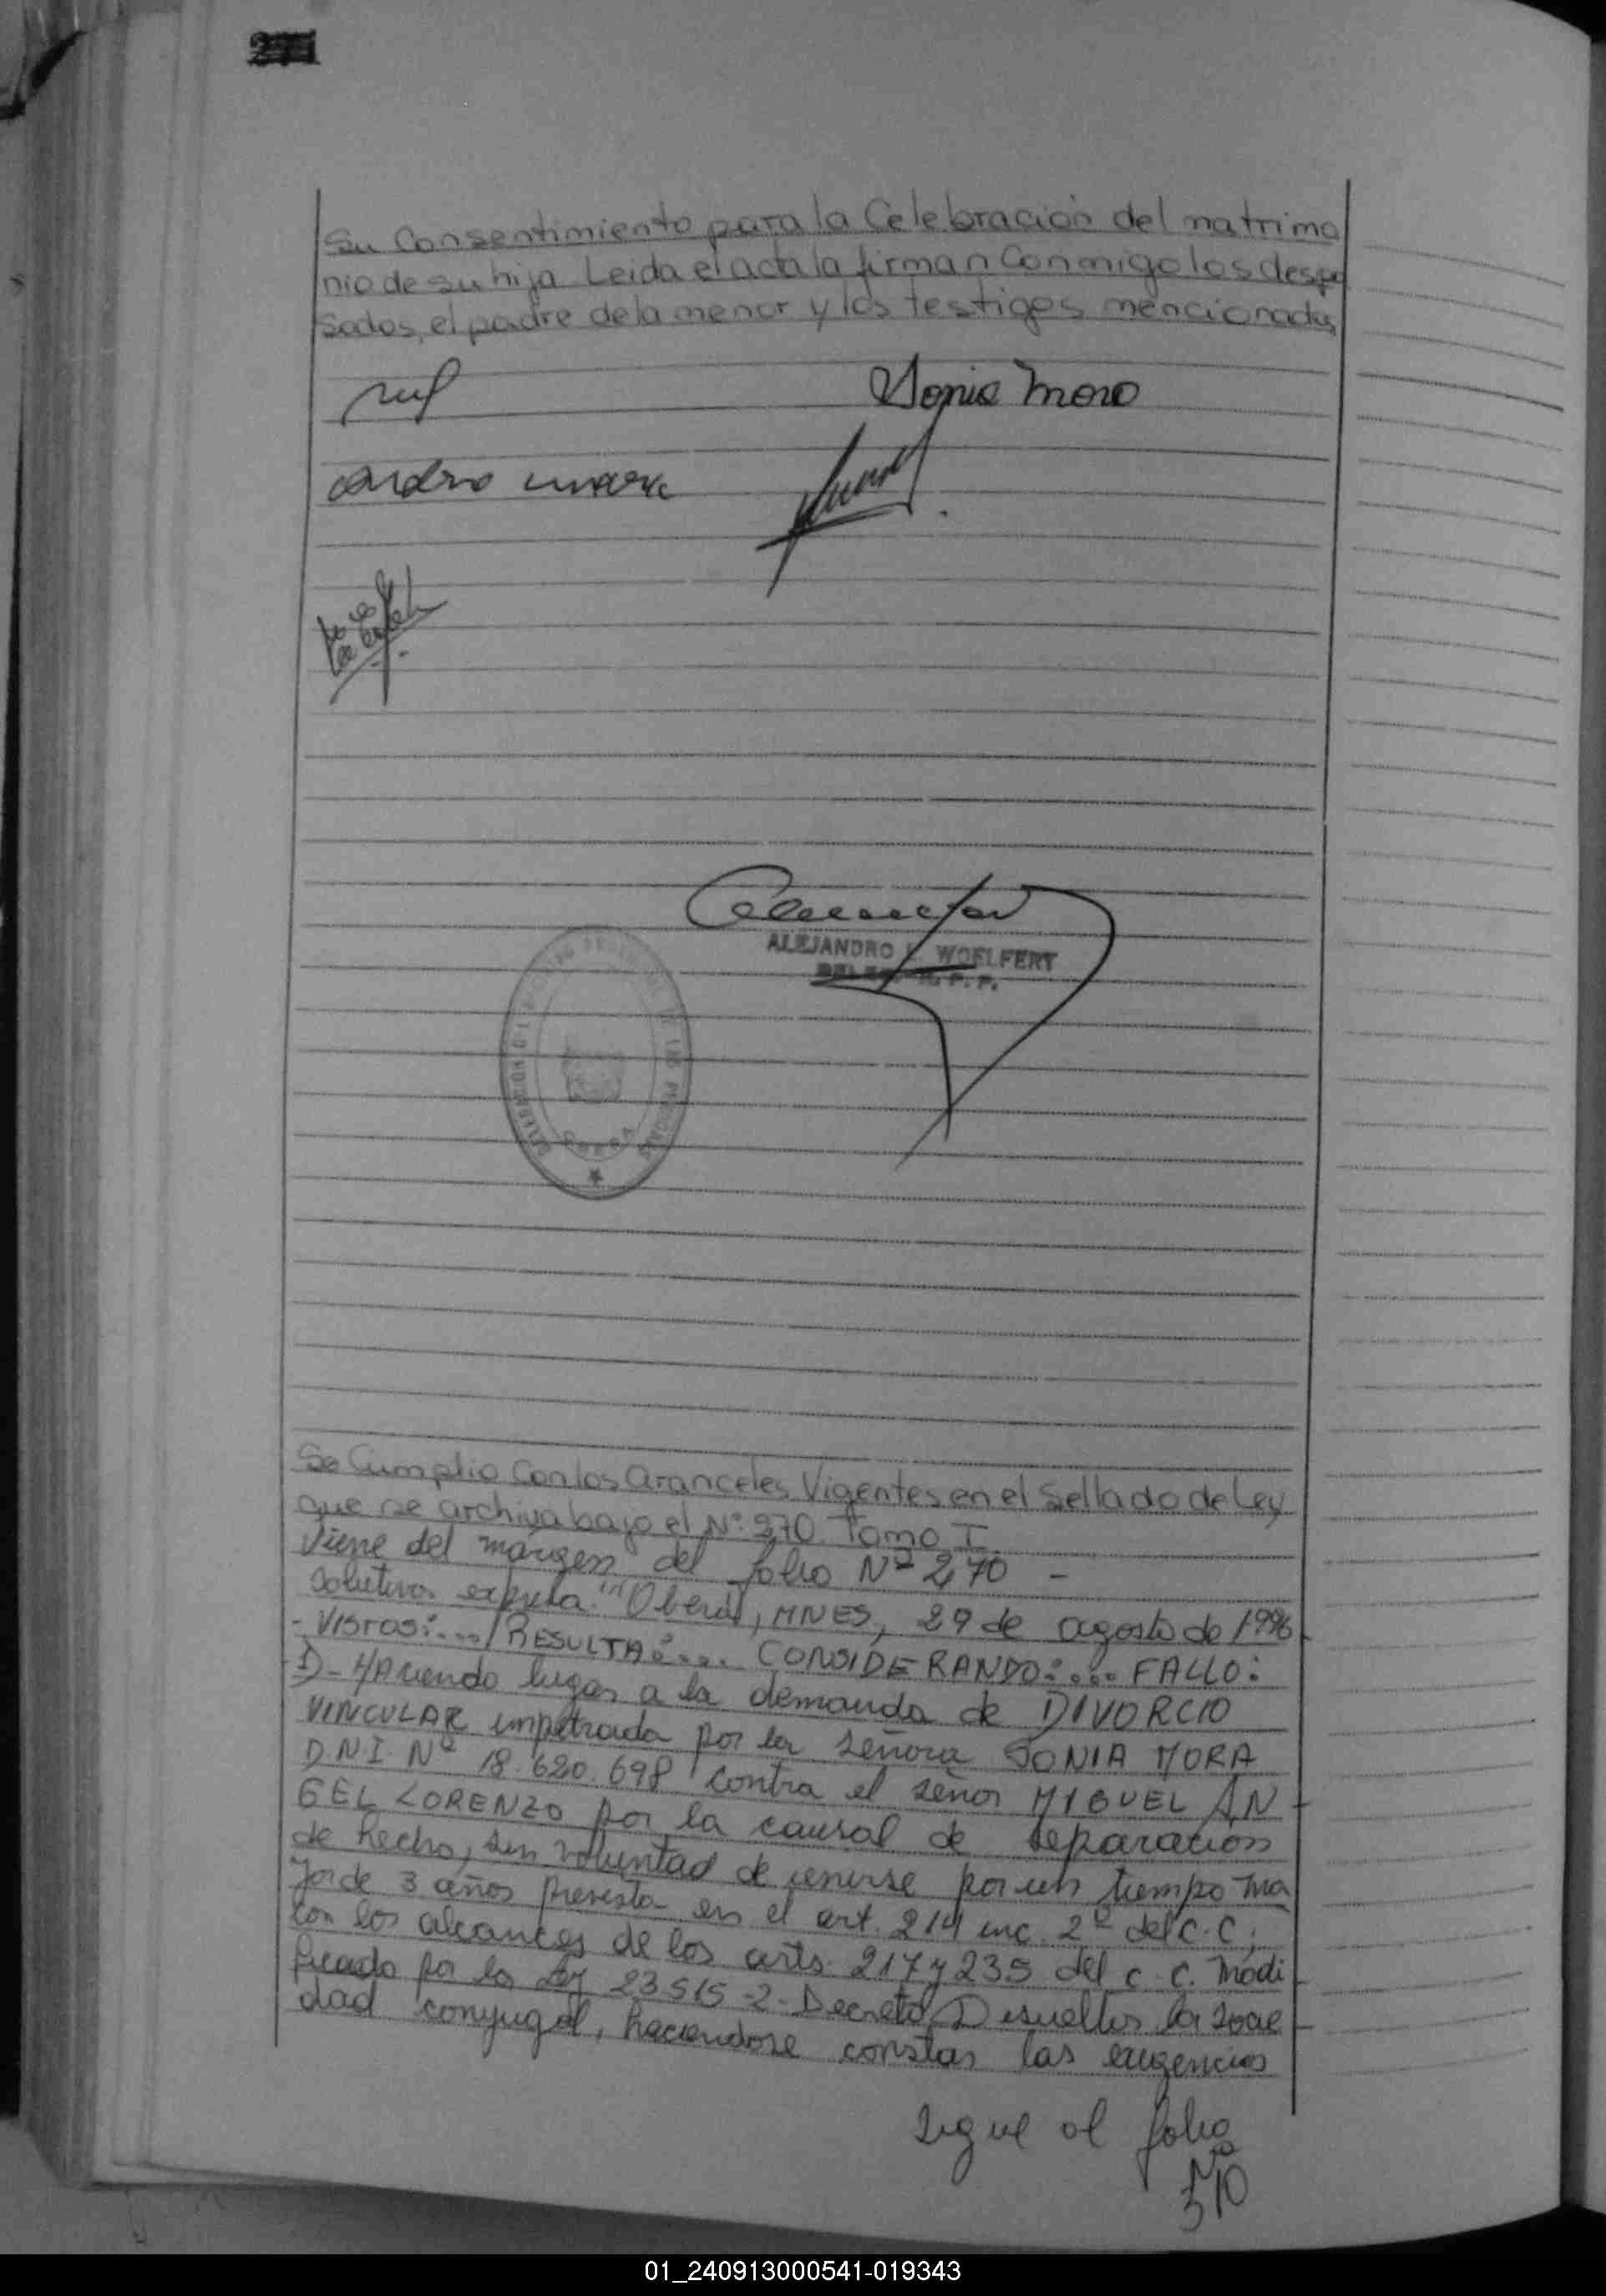 Su Consentimiento para la Celebración del matrimo
nio de su hija. Leida el acta la firman Conmigo los despo
sados, el padre de la menor y los testigos mencionados,
Sonia Mora
ALEJANDRO WOELFERT
Se Cumplio Con los aranceles Vigentes en el Sellado de Ley
que se archiva bajo el Nº 270. Tomo I
Viene del márgen del folio Nº 270 -
solutiva expresa: "Oberá, MNES, 29 de agosto de 1996
- VISTOS:.../ RESULTA:.... CONSIDERANDO:.... FALLO:
1)- HAciendo lugar a la demanda de DIVORCIO
VINCULAR impetrada por la señora SONIA MORA
D.N.I. Nº 18.620.698 contra el señor MIGUEL ÁN
GEL LORENZO por la causal de separación
de hecho, sin voluntad de unirse por un tiempo ma
yor de 3 años prevista en el art. 214 inc. 2º del C.C;
con los alcances de los arts. 217 y 235 del C.C. modi
ficado por la Ley 23.515 -2- Decreto Disuelta la socie
dad conyugal, haciendose constar las exigencias
sigue al folio
Nº
310
01_240913000541-019343